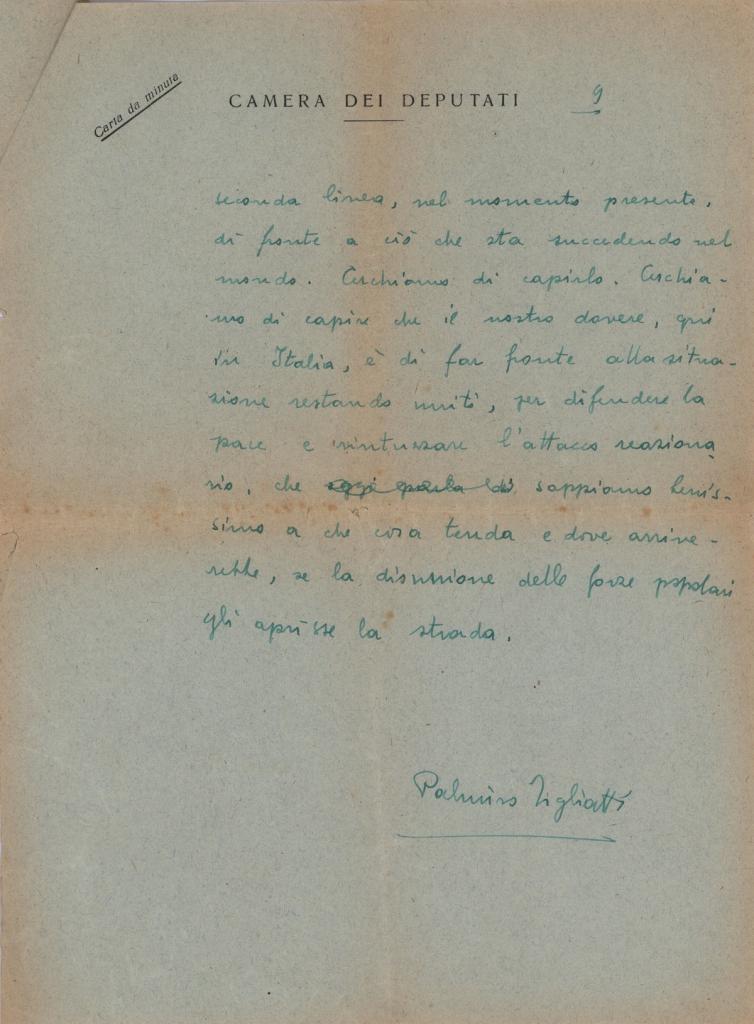 Carta da minuta
CAMERA DEI DEPUTATI
9
seconda linea, nel momento presente,
di fronte a ciò che sta succedendo nel
mondo. Cerchiamo di capirlo. Cerchia-
mo di capire che il nostro dovere, qui
in Italia, è di far fronte alla situa-
zione restando uniti, per difendere la
pace e rintuzzare l'attacco reaziona
rio, che oggi parla di sappiamo benis-
simo a che cosa tenda e dove arrive-
rebbe, se la disunione delle forze popolari
gli aprisse la strada.
Palmiro Togliatti